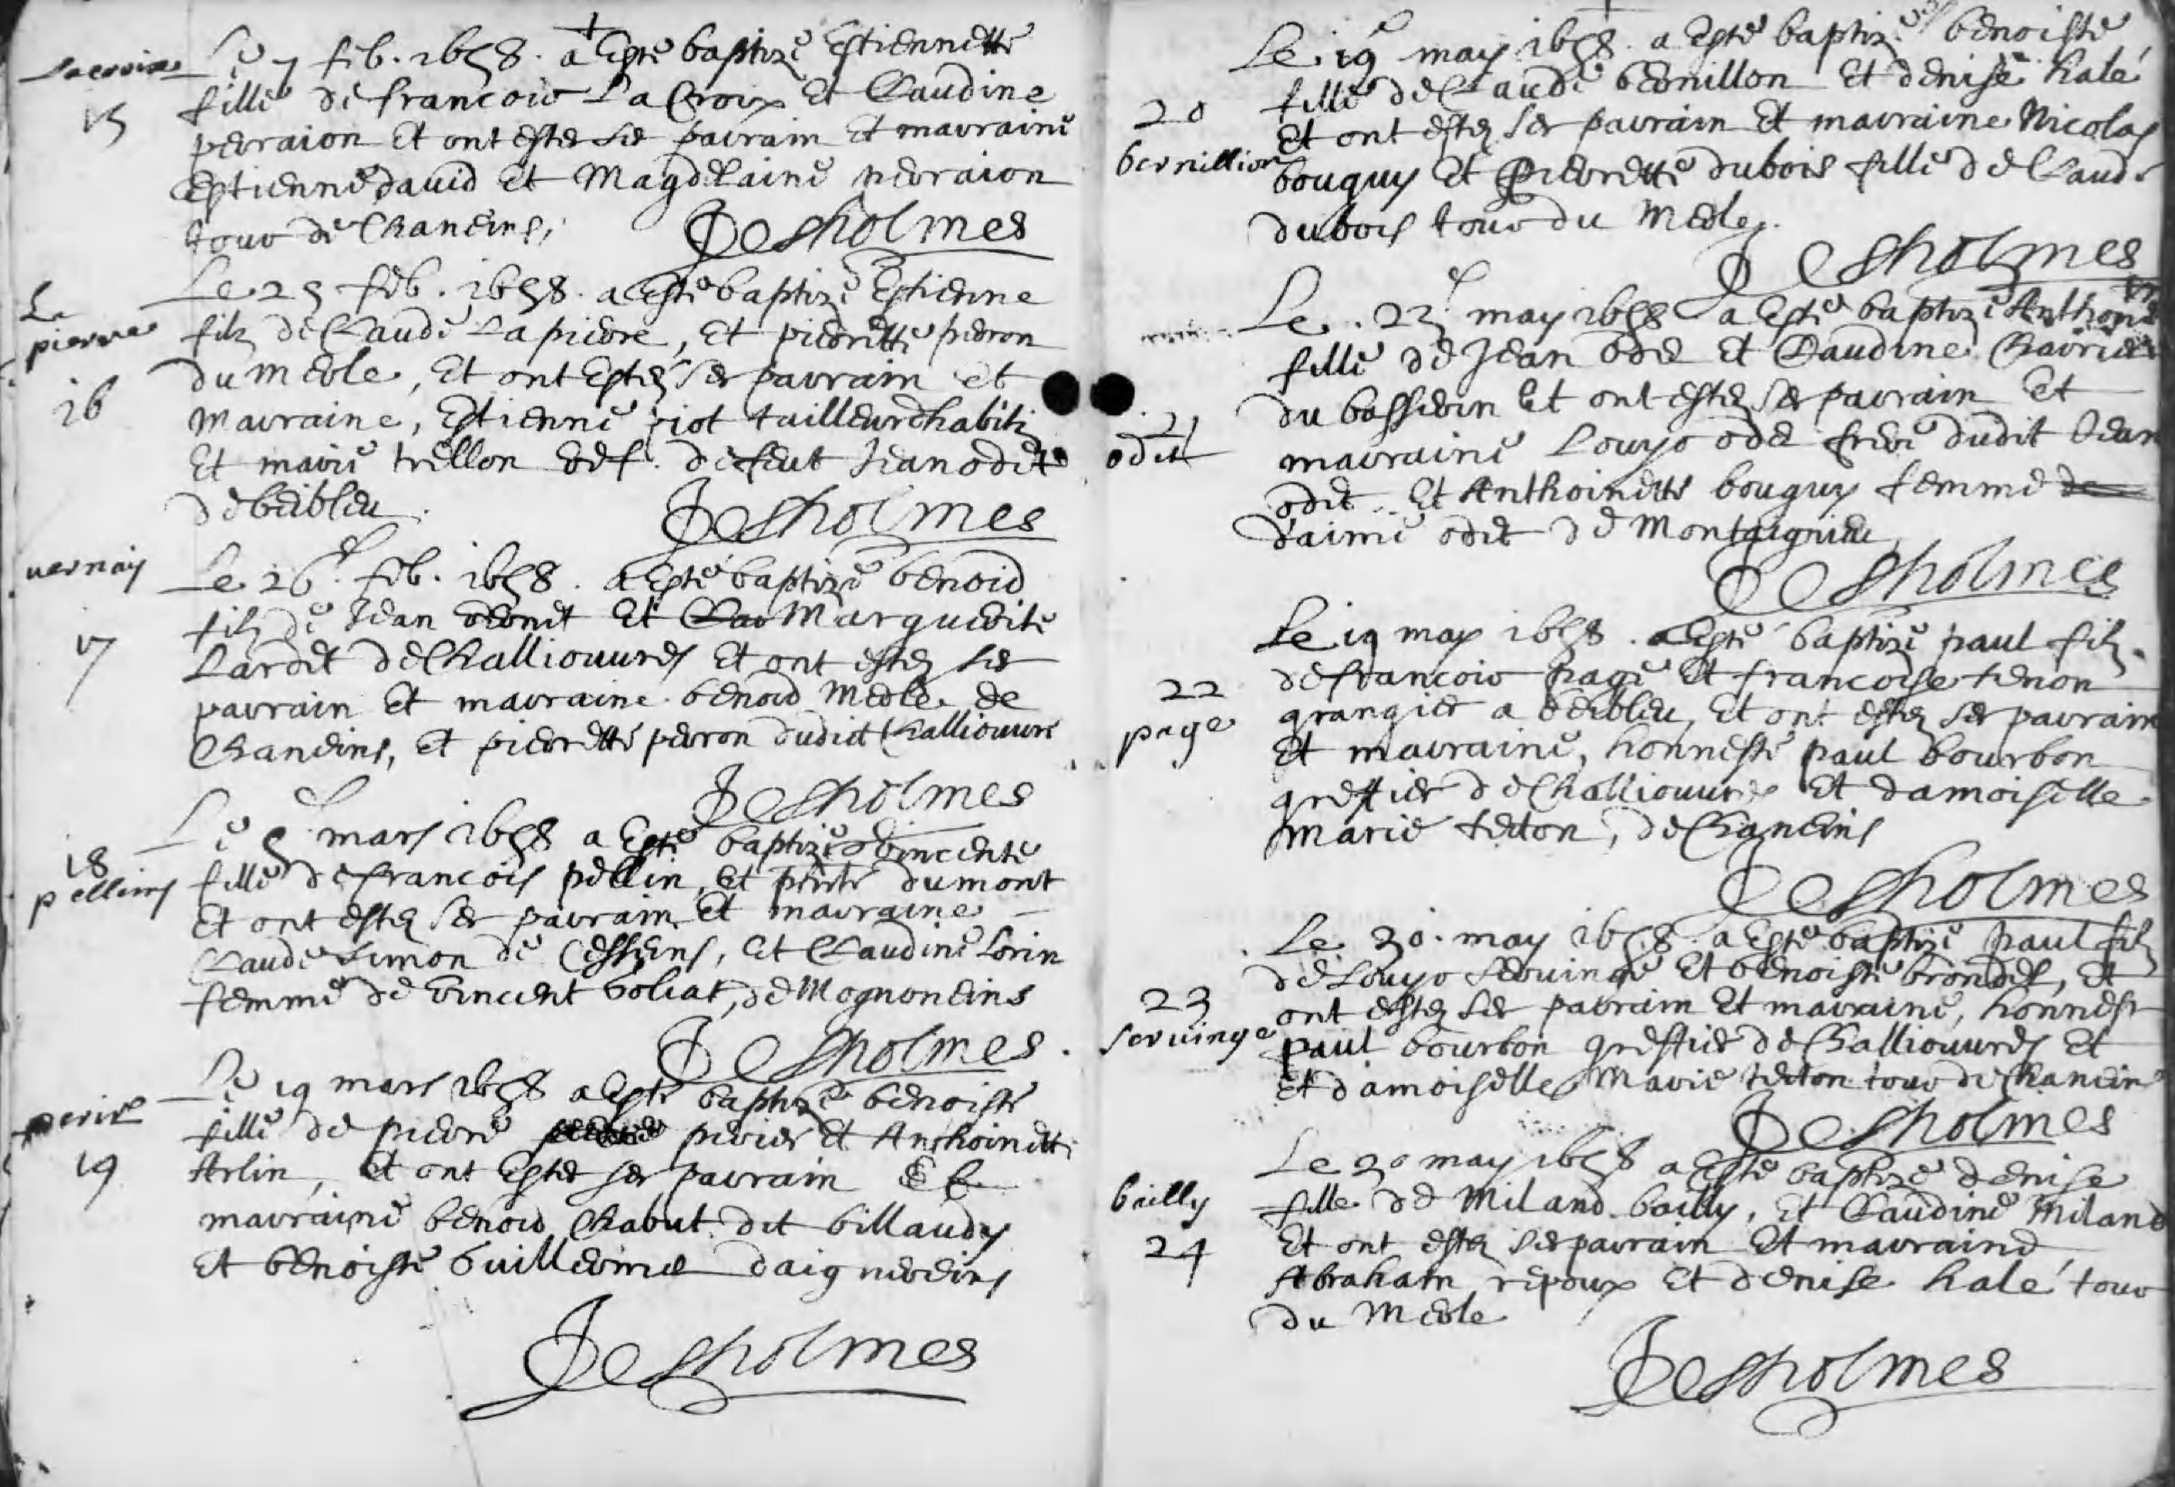 Lacroix
15
Le 7 feb. 1658. a esté baptizé Estiennette
fille de francois La Croix et Claudine
perraion et ont estez ses parrain et marraine
Estienne david et Magdelaine perraion
tous de Chaneins,
Desholmes
La
pierre
16
Le 25 feb. 1658. a esté baptizé Estienne
filz de Claude Lapierre, et pierrette perron
du Merle, et ont estez ses parrain et
marraine, Estienne riot tailleur d'habitz
et marie trellon vef. de feut Jean odet
de beibleu.
Desholmes
vernay
17
Le 26. feb. 1658. a esté baptizé benoid
filz de Jean vernet et Marguerite
Lardet de Challiouures et ont estez ses
parrain et marraine. benoid Merle de
Chaneins, et pierrette perron dudict Challiouure
Desholmes
18
pellins
Le mars 1658 a esté baptizé vincente
fille de francois pellin, et dumont
et ont estez ses parrain et marraine
Claude Simon de Cesseins, et Claudine Lorin
femme de vincent voliat, de Mognoneins
Desholmes.
perier
19
Le 19 mars 1658 a esté baptizé benoiste
fille de pierre perier et Anthoinette
Arlin, et ont estez ses parrain et
marraine benoid Chabut dit billaudy
et benoiste Guillerme daignereins
Desholmes
20
bernillion
Le 19 may 1658. a esté baptizé benoiste
fille de Claude bernillon et denise halé
et ont estez ses parrain et marraine Nicolas
bouquy et pierrette dubois fille de Claude
dubois tous du Merle.
Desholmes
21
odet
Le. 23 may 1658 a esté baptizé
fille de Jean odet et Claudine
du bossieron et ont estez ses parrain et
marraine Louys odet frere dudit Jean
odet et Anthoinette bouquy femme de
d'aimé odet de Montaignieu
Desholmes
22
page
Le 19 may 1658. a esté baptizé paul filz.
de francois page et francoise tenon
grangier a beibleu, et ont estez ses parrain
et marraine, honneste paul bourbon
greffier de Challiouures et damoiselle
marie teton, de Chaneins
Desholmes
23
servinge
Le 30. may 1658. a esté baptizé paul filz
de Louys servinge et benoiste brondel, et
ont estez ses parrain et marraine, honnest
paul bourbon greffier de Challiouures et
et damoiselle Marie teton tous de Chanein
Desholmes
bailly
24
Le 30 may 1658 a esté baptizé denise
fille de Miland bailly, et Claudine Miland
et ont estez ses parrain et marraine
Abraham repoux et denise halé tous
du Merle
Desholmes